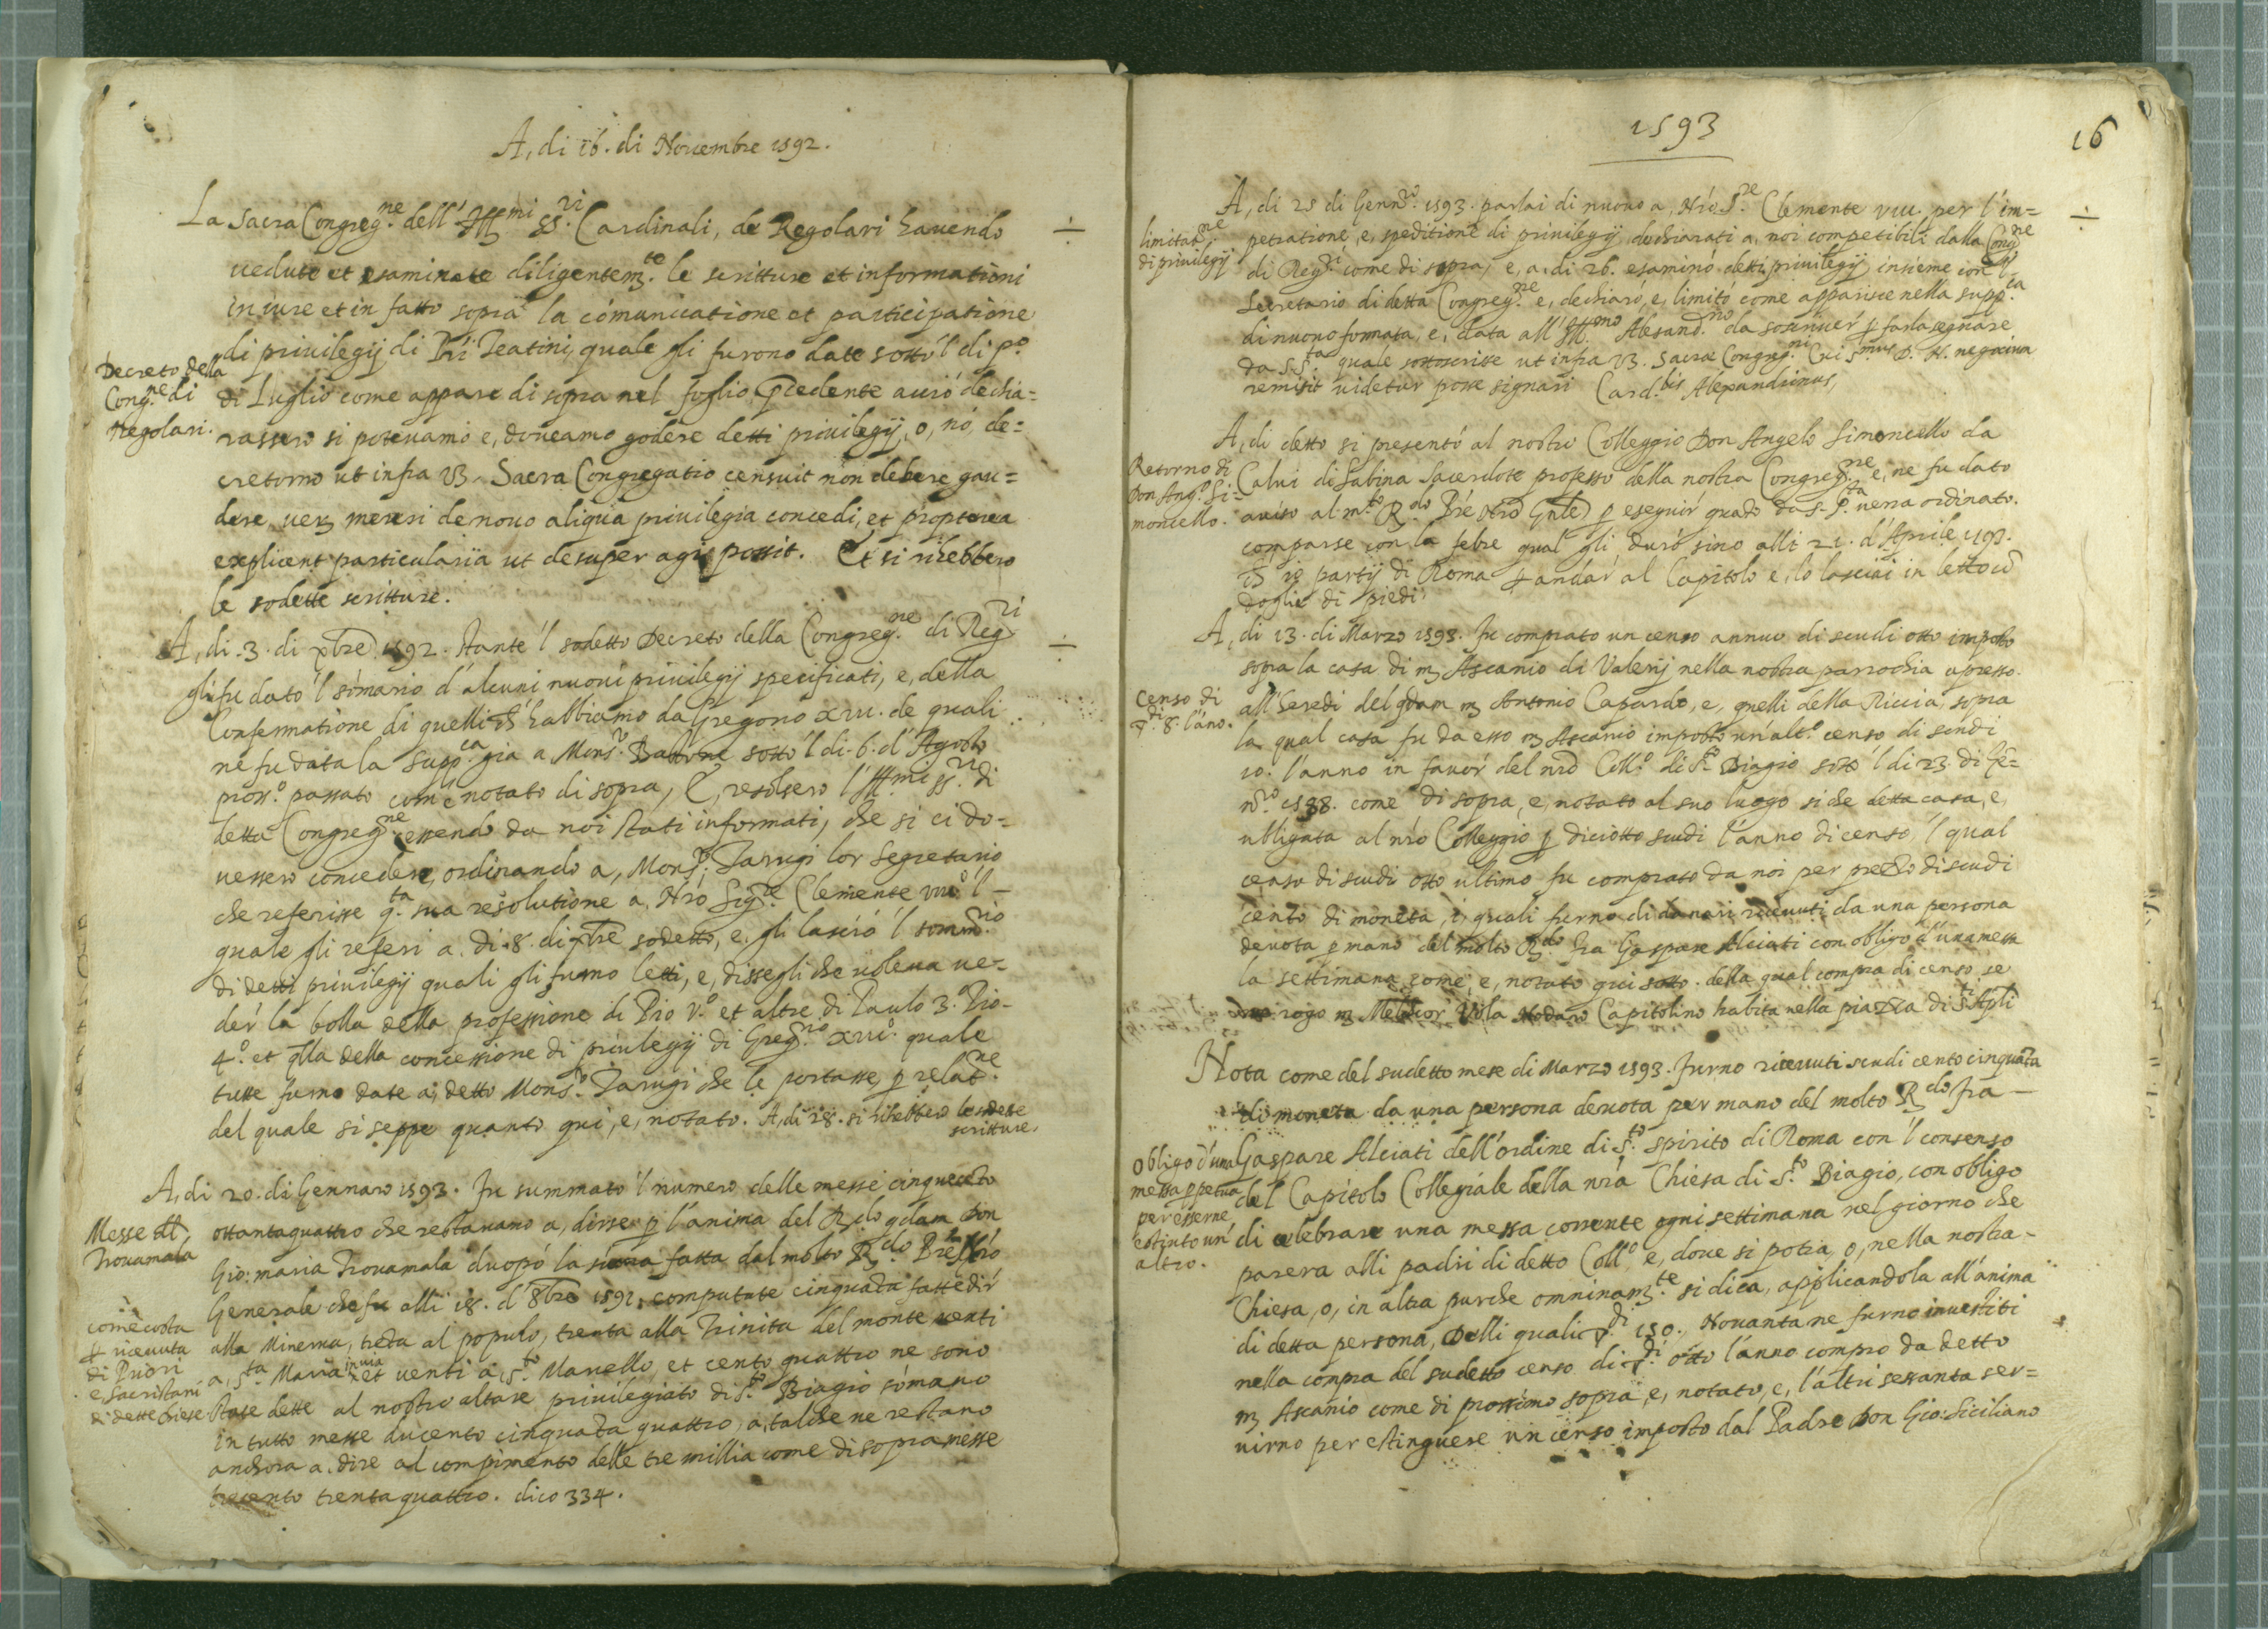 A, di 16. di Novembre 1592.
La Sacra Congreg.ne dell' Ill.mi SS.ri Cardinali, de Regolari havendo
vedute et esaminate diligentem.te le scritture et informationi
in iure et in fatto sopra la cómunicatione et participatione
di privilegij di Pri Teatini, quale gli furono date sotto 'l di p.o
Decreto della
Cong.ne di
Regolari.
di Luglio come appare di sopra nel foglio pcedente acció dechia=
rassero si potevamo e, doveamo godere detti privilegij, o, nó, de=
cretorno ut infra V3. Sacra Congregatio censuit non debere gau=
dere, verz mereri denovo aliqua privilegia concedi, et propterea
explicent particularia ut desuper agi possit. Et si rihebbero
le sodette scritture.
A, di .3. di xbre 1592. Stante 'l sodetto Decreto della Congreg.ne di Reg.ri
gli fu dato 'l sómario d'alcuni nuovi privilegij specificati, e, della
Confermatione di quelli ch' habbiamo da Gregorio XIII. de quali
ne fu data la supp.ca gia a Mons.r sotto 'l di .6. d'Agosto
pross.o passato come notato di sopra, E, resolsero l' Ill.mi SS.ri di
detta Congreg.ne essendo da noi stati informati, che si ci do=
vessero concedere, ordinando a, Mons.r Tarugi lor Segretario
che referisse q.ta sua resolutione a, Nró Sig.re Clemente VIII.o 'l
quale gli referi a. di .8. di xbre sodetto, e. gli lasció 'l somm.rio
di detti privilegij quali gli furno letti, e, dissegli che voleva ve=
der' la bolla della professione di Pio V.o et altre di Paulo 3.o Pio
4.o et qlla della concessione di privilegij di Greg.rio XIII.o quale
tutte furno date a, detto Mons.r Tarugi che le portasse, p relat.ne
del quale si seppe quanto qui, e, notato. A, di 18. si rihebbero le sodette
scritture.
A, di 20. di Gennaro 1593. Fu summato 'l numero delle messe cinquecéto
Messe
Trovamala
ottantaquattro che restavano a, dirse p l'anima del R.do qdam Don
Gio: maria Trovamala duopó la fatta dal molto R.do Pre Nró
Generale che fu alli 18. d' 8bre 1592. computate cinquáta fatte dir'
come costa
ricevuta
di Priori
e Sacristani
di dette chiese
alla Minerva, tréta al populo, trenta alla Trinita del monte venti
a, S.ta Maria in via et venti a, S.to Marcello, et cento quattro ne sono
state dette al nostro altare privilegiato di S.to Biagio sómano
in tutto messe ducento cinquáta quattro, a, talche ne restano
anchora a, dire al compimento delle tre millia come di sopra messe
trecento trentaquattro. dico 334.
1593
16
A, di 25 di Genn.ro 1593. parlai di nuovo a, Nró S.re Clemente VIII. per l'im=
limitat.ne
di privilegij
petratione, e, speditione di privilegij dechiarati a, noi competibili dalla Cong.ne
di Reg.ri come di sopra, e, a. di 26. esaminó detti privilegij insieme con 'l
Secretario di detta Congreg.ne e, dechiaró, e, limitó come apparisce nella supp.ca
di nuovo formata, e, data all' Ill.mo Alesand.no da p farla segnare
da S. S.ta quale sottoscrisse ut infra V3. Sacrae Congreg.ni Cui S.mus D. N. negocium
remisit videtur posse signari Card.lis Alexandrinus,
A, di detto si presentó al nostro Colleggio Don Angelo Simoncello da
Retorno di
Don Ang.o Si=
moncello.
Calvi di Sabina Sacerdote professo della nostra Congreg.ne e, ne fu dato
aviso al m.to R.do Pré Nro Gnle p eseguir' quáto da S. P.ta verra ordinato.
comparse con la febre qual gli duró sino alli 21. d'Aprile 1593.
ch' io partij di Roma p andar' al Capitolo e, lo lasciai in letto có
doglie di piedi.
A, di 13. di Marzo 1593. Fu comprato un censo annuo di scudi otto imposto
sopra la casa di m Ascanio di Valerij nella nostra parrochia apresso
Censo di
di 8. l'áno.
all' heredi del qdam m Antonio Capardo, e, quelli della Riccia, sopra
la qual casa fu da esso m Ascanio imposto un'alt.o censo di scudi
10. l'anno in favor' del nró Coll.o di S.to Biagio sotto 'l di 23. di Ge=
n.ro 1588. come di sopra, e, notato al suo luogo si che detta casa, e,
ubligata al nró Colleggio p diciotto scudi l'anno di censo, 'l qual
censo di scudi otto ultimo fu comprato da noi per prezzo di scudi
cento di moneta, i, quali furno di danari ricevuti da una persona
devota p mano del molto R.do fra Gaspare Alciati con obligo d'una messa
la settimana come, e, notato qui sotto. della qual compra di censo se
rogo m Melchior Vola Nodaro Capitolino habita nella piazza di S.ti Apli
Nota come del sudetto mese di Marzo 1593. furno ricevuti scudi cento cinquáta
di moneta da una persona devota per mano del molto R.do fra
Obligo d'una
messa ppetua
per esserne
estinto un'
altro.
Gaspare Alciati dell'ordine di S.to spirito di Roma con 'l consenso
del Capitolo Collegiale della nrá Chiesa di S.to Biagio, con obligo
di celebrare una messa corrente ogni settimana nel giorno che
parera alli padri di detto Coll.o e, dove si potra, o, nella nostra
Chiesa, o, in altra purche omninam.te si dica, applicandola all'anima
di detta persona, Delli quali di 150. Novanta ne furno investiti
nella compra del sudetto censo di di otto l'anno compro da detto
m Ascanio come di prossimo sopra, e, notato, e, l'altri sessanta ser=
virno per estinguere un censo imposto dal Padre Don Gio: Siciliano